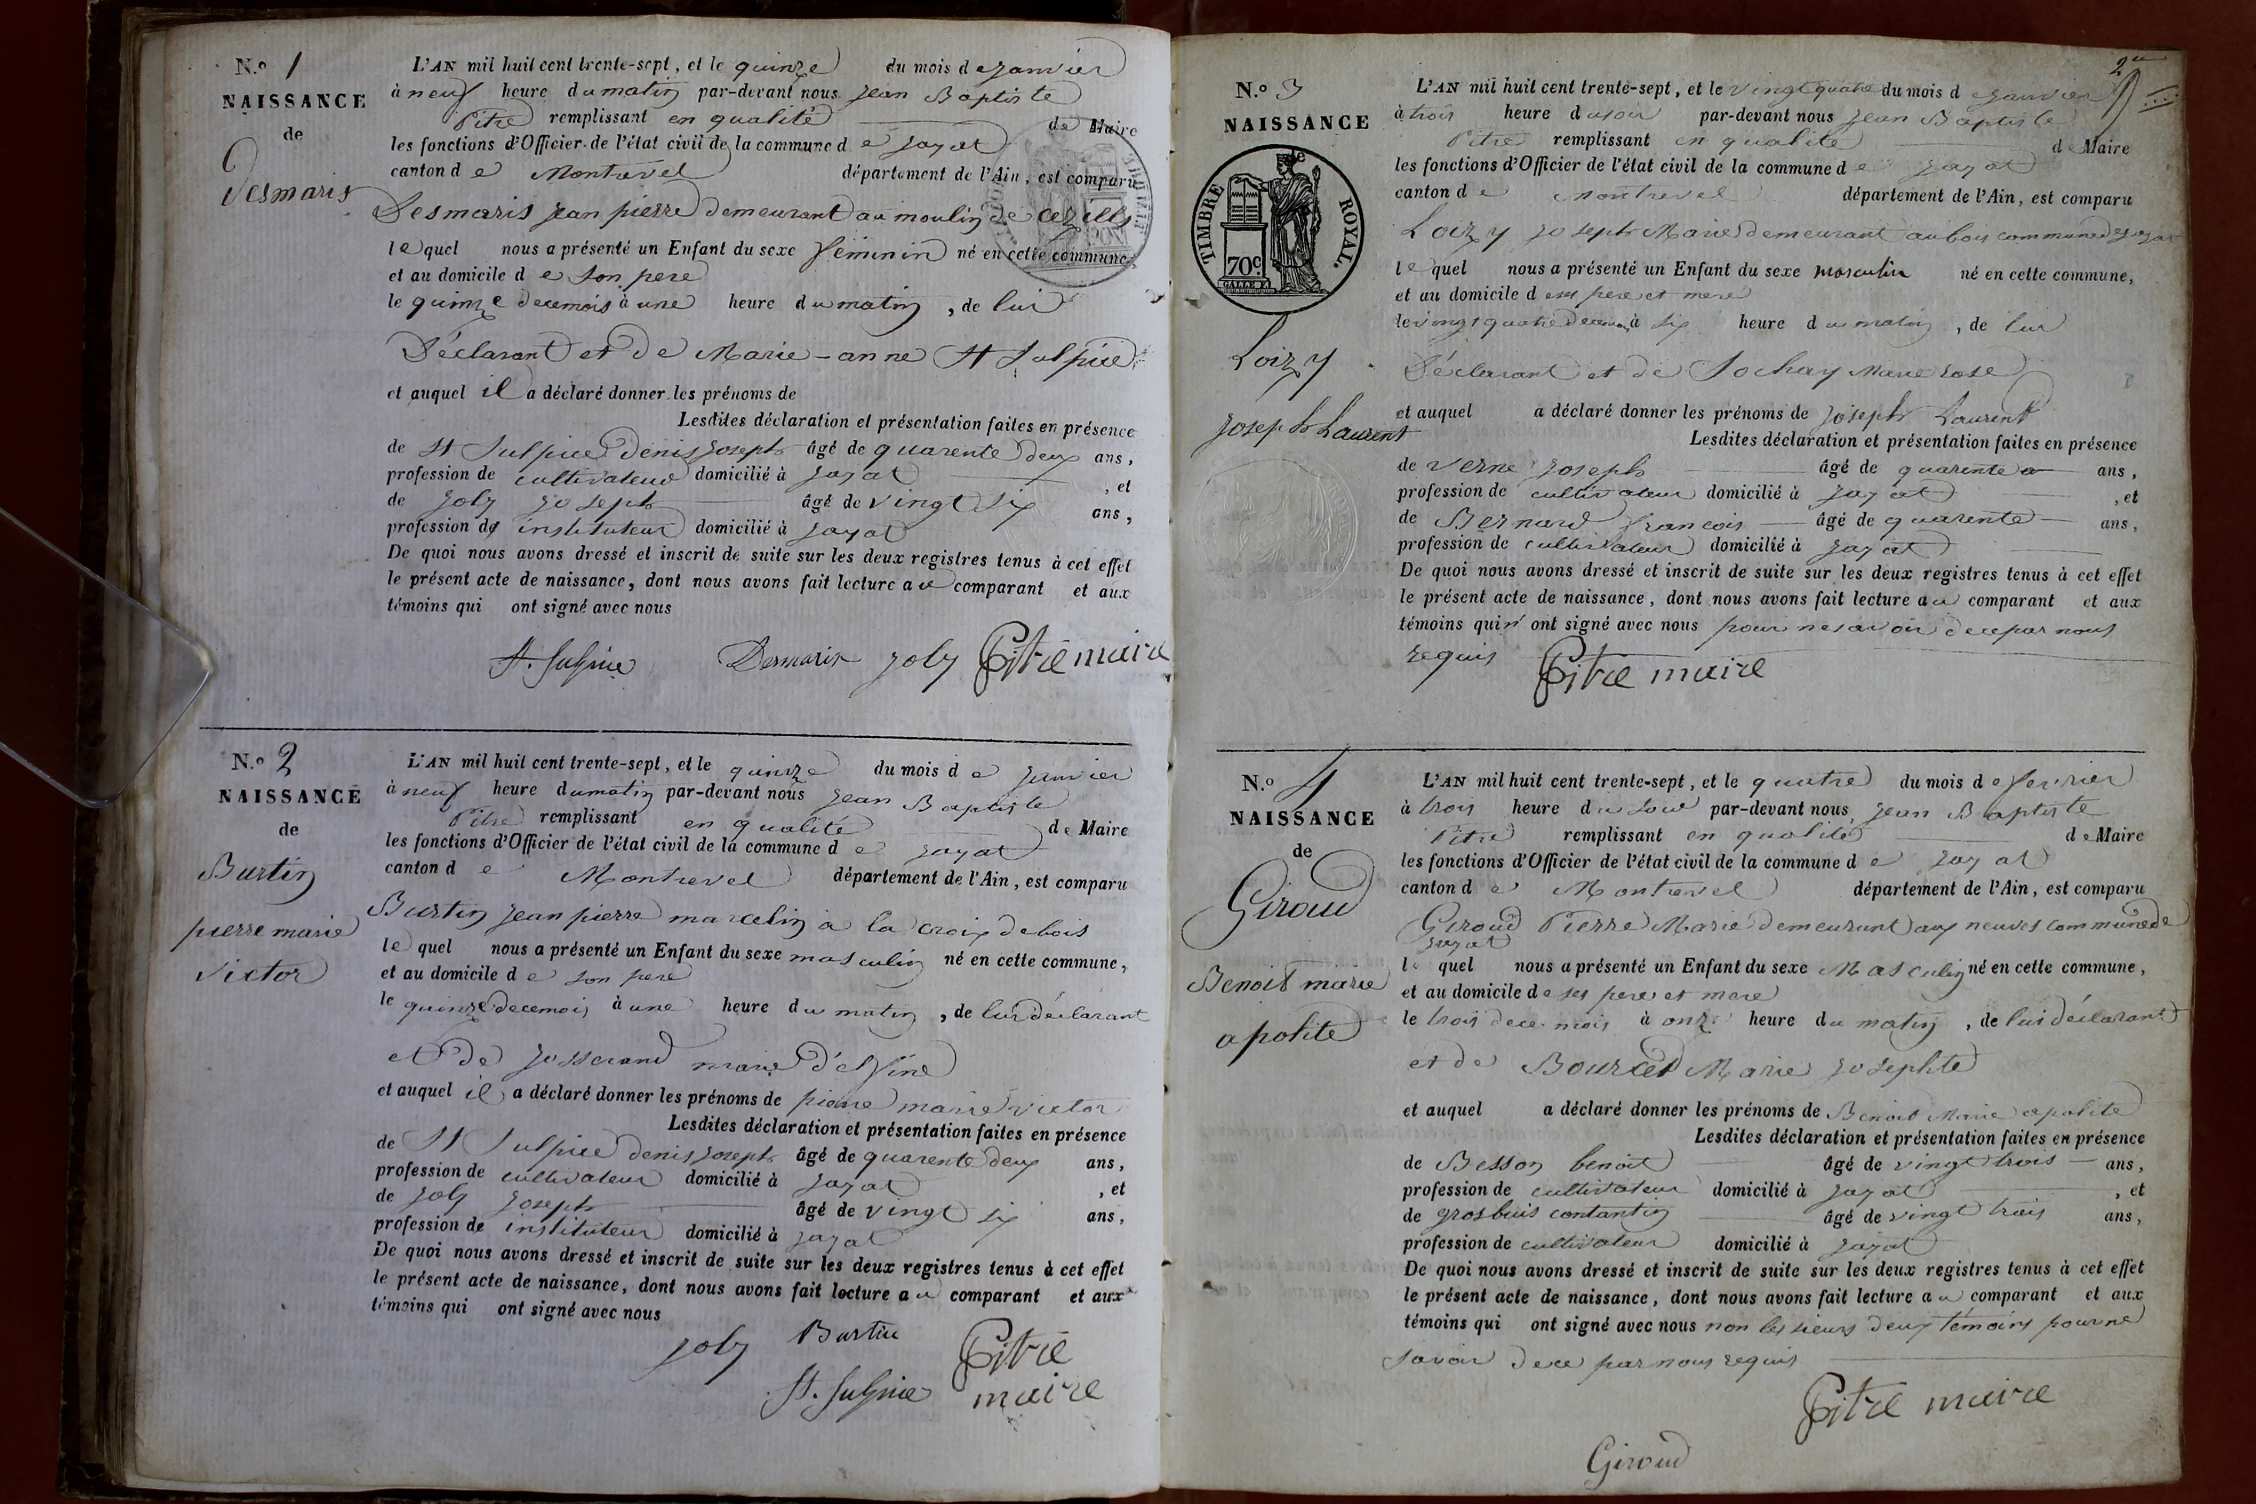 N.º 1
NAISSANCE
de
Desmaris
L'AN mil huit cent trente-sept, et le quinze du mois de janvier
à neuf heure du matin par-devant nous jean Baptiste
Pitre remplissant en qualité de Maire
les fonctions d'Officier de l'état civil de la commune de jayat
canton de Montrevel département de l'Ain, est comparu
Desmaris jean pierre demeurant au moulin de cezille
lequel nous a présenté un Enfant du sexe féminin né en cette commune
et au domicile de son pere
le quinze decemois à une heure du matin, de lui
Déclarant et de Marie-anne St Sulpice
et auquel il a déclaré donner les prénoms de
Lesdites déclaration et présentation faites en présence
de St Sulpice denis joseph âgé de quarente deux ans,
profession de cultivateur domicilié à jayat, et
de joly joseph âgé de vingt six ans,
profession de instituteur domicilié à jayat
De quoi nous avons dressé et inscrit de suite sur les deux registres tenus à cet effet
le présent acte de naissance, dont nous avons fait lecture au comparant et aux
témoins qui ont signé avec nous
St. Sulpice Desmaris joly Pitre maire
N.º 2
NAISSANCE
de
Burtin
pierre marie
victor
L'AN mil huit cent trente-sept, et le quinze du mois de janvier
à neuf heure du matin par-devant nous jean Baptiste
Pitre remplissant en qualité de Maire
les fonctions d'Officier de l'état civil de la commune de jayat
canton de Montrevel département de l'Ain, est comparu
Burtin jean pierre marcelin à la croix de bois
lequel nous a présenté un Enfant du sexe masculin né en cette commune,
et au domicile de son pere
le quinze decemois à une heure du matin, de lui déclarant
et de josserand marie
et auquel il a déclaré donner les prénoms de pierre marie victor
Lesdites déclaration et présentation faites en présence
de St Sulpice denis joseph âgé de quarente deux ans,
profession de cultivateur domicilié à jayat, et
de joly joseph âgé de vingt six ans,
profession de instituteur domicilié à jayat
De quoi nous avons dressé et inscrit de suite sur les deux registres tenus à cet effet
le présent acte de naissance, dont nous avons fait lecture au comparant et aux
témoins qui ont signé avec nous
joly Burtin Pitre
St. Sulpice maire
2
N.º 3
NAISSANCE
TIMBRE ROYAL.
70c.
Loizy
joseph Laurent
L'AN mil huit cent trente-sept, et le vingt quatre du mois de janvier
à trois heure du soir par-devant nous jean Baptiste
Pitre remplissant en qualité de Maire
les fonctions d'Officier de l'état civil de la commune de jayat
canton de Montrevel département de l'Ain, est comparu
Loizy joseph Marie demeurant au bois commune de jayat
lequel nous a présenté un Enfant du sexe masculin né en cette commune,
et au domicile de ses pere et mere
le vingt quatre decemois à six heure du matin, de lui
Déclarant et de Sochay Marie rose
et auquel a déclaré donner les prénoms de joseph Laurent
Lesdites déclaration et présentation faites en présence
de verne joseph âgé de quarente ans,
profession de cultivateur domicilié à jayat, et
de Bernard françois âgé de quarente ans,
profession de cultivateur domicilié à jayat
De quoi nous avons dressé et inscrit de suite sur les deux registres tenus à cet effet
le présent acte de naissance, dont nous avons fait lecture au comparant et aux
témoins qui n'ont signé avec nous pour ne savoir dece par nous
requis Pitre maire
N.º 4
NAISSANCE
de
Giroud
Benoit marie
apolite
L'AN mil huit cent trente-sept, et le quatre du mois de fevrier
à trois heure du soir par-devant nous jean Baptiste
Pitre remplissant en qualité de Maire
les fonctions d'Officier de l'état civil de la commune de jayat
canton de Montrevel département de l'Ain, est comparu
Giroud Pierre Marie demeurant aux neuves commune de
jayat
lequel nous a présenté un Enfant du sexe Masculin né en cette commune,
et au domicile de ses pere et mere
le trois dece mois à onze heure du matin, de lui déclarant
et de Bourcet Marie josephte
et auquel a déclaré donner les prénoms de Benoit Marie apolite
Lesdites déclaration et présentation faites en présence
de Besson benoit âgé de vingt trois ans,
profession de cultivateur domicilié à jayat, et
de grosbuis contantin âgé de vingt trois ans,
profession de cultivateur domicilié à jayat
De quoi nous avons dressé et inscrit de suite sur les deux registres tenus à cet effet
le présent acte de naissance, dont nous avons fait lecture au comparant et aux
témoins qui ont signé avec nous non les sieurs deux témoins pour ne
savoir dece par nous requis
Pitre maire
Giroud